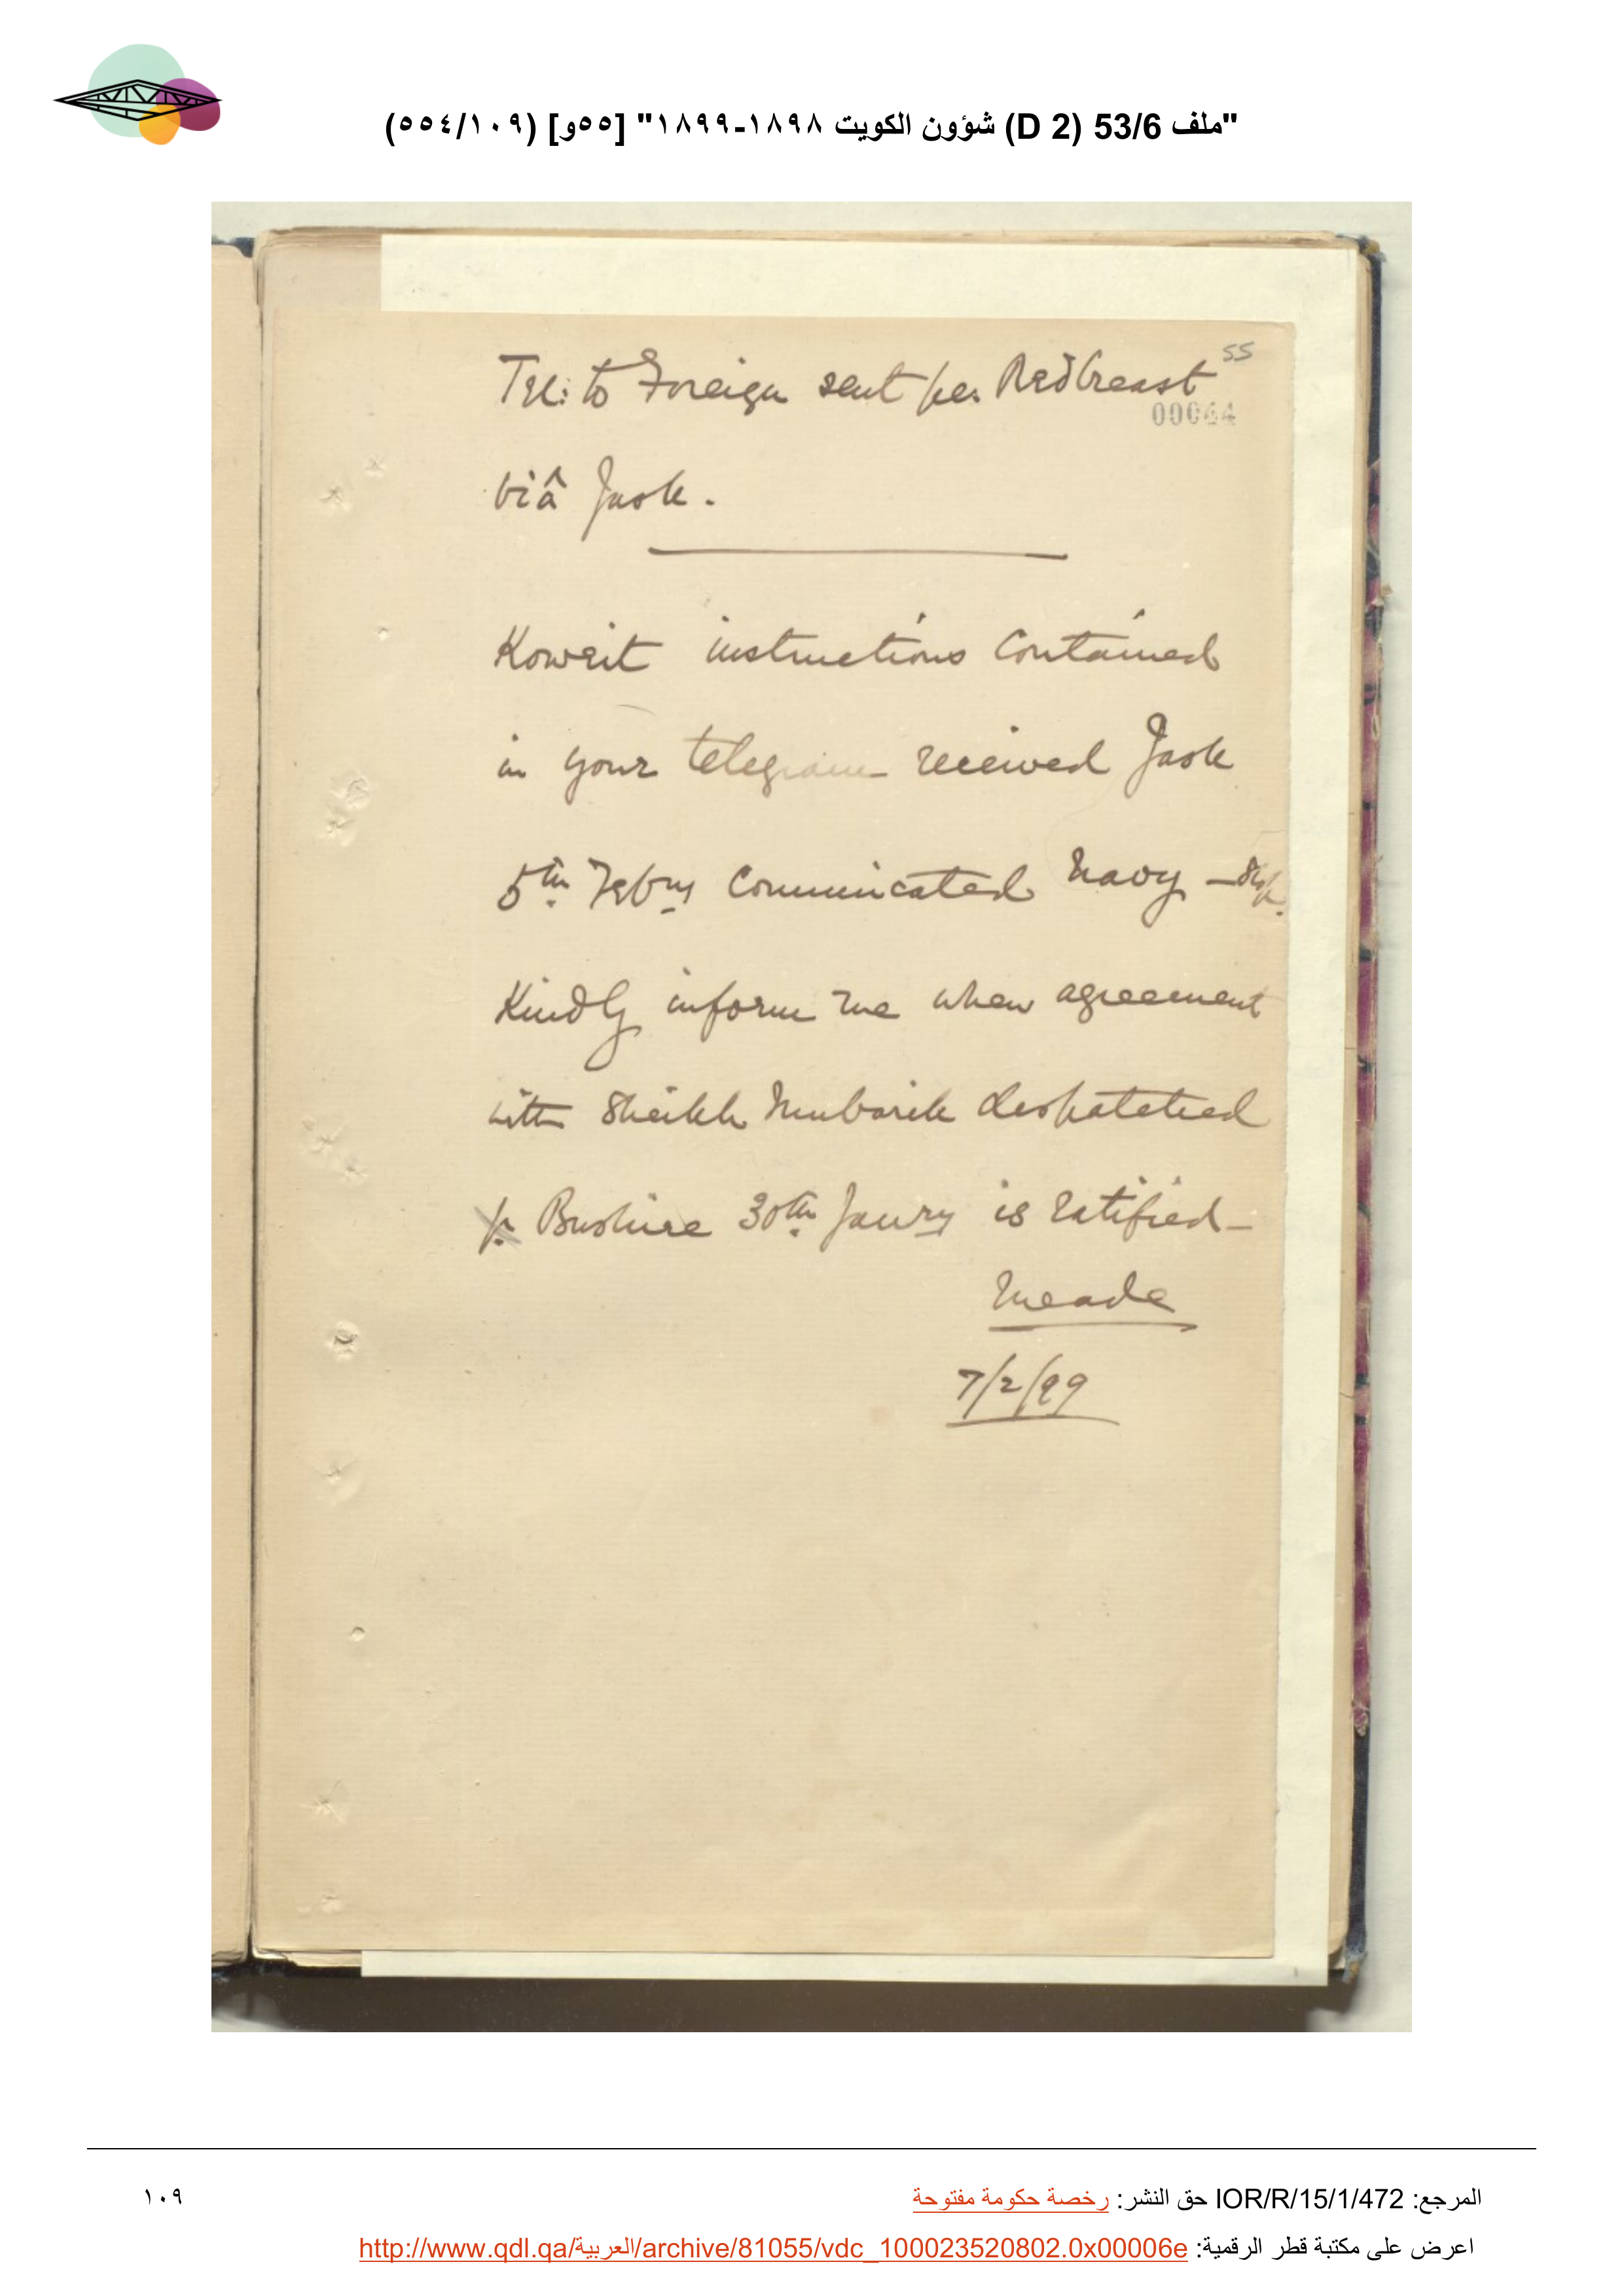 "ملف 53/6 (D 2) شؤون الكويت ١٨٩٨-١٨٩٩" [٥٥و] (١٠٩/٥٥٤)
55
Tel: to Foreign sent per Redbreast
00044
viâ Jask.
Koweit instructions contained
in your telegram received Jask
5th Febry communicated Navy – Stop.
Kindly inform me when agreement
with Sheikh Mubarik despatched
Bushire 30th Janry is ratified –
Meade
7/2/99
المرجع: IOR/R/15/1/472 حق النشر: رخصة حكومة مفتوحة
١٠٩
اعرض على مكتبة قطر الرقمية: http://www.qdl.qa/العربية/archive/81055/vdc_100023520802.0x00006e